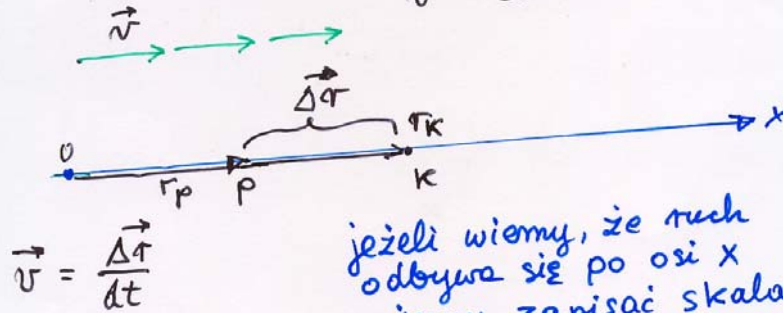 v⃗
Δr⃗
0 r_p p r_K K x
v⃗ = Δr⃗ / dt
jeżeli wiemy, że ruch
odbywa się po osi x
zapisać skala